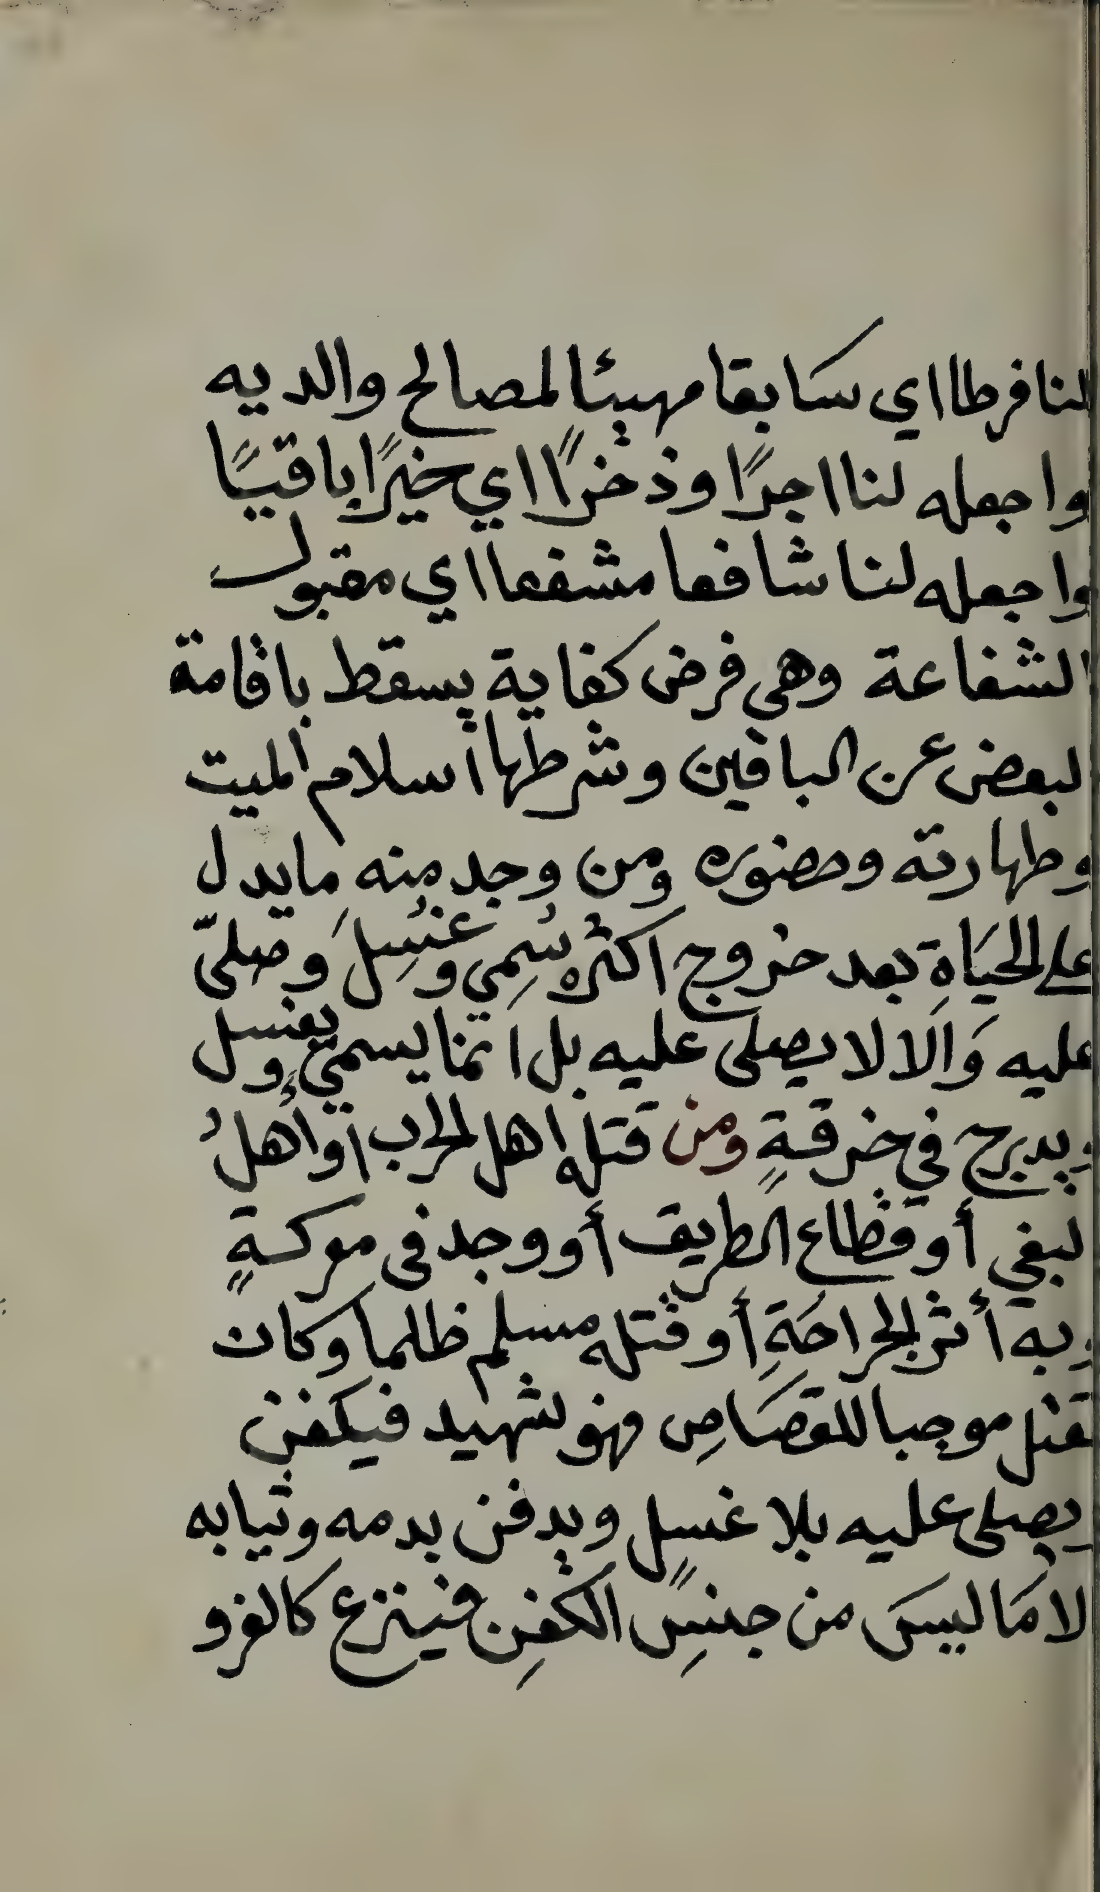 لنا فرطا اي سابقا مهيئا لمصالح والديه
واجعله لنا اجرًا وذخرًا اي خيرًا باقيًا
واجعله لنا شافعا مشفعا اي مقبول
الشفاعة وهي فرض كفاية يسقط باقامة
لبعض عن الباقين وشرطها أسلام الميت
وطهارته وحضوره ومن وجد منه ما يدل
على الحيَاةِ بعد خروج اكثره سُمِي وغُسِلَ وصلىّ
عليه وَالا لا يصلى عليه بل انما يسمى ويغسل
ويدرج في خرقةٍ ومن قتله اهل الحرب أو أهلُ
لبغي أو قطاع الطريق أو وجد في معركةٍ
وبه أثر الجراحَةِ أو قتله مسلم ظلما وكان
لقتل موجبا للقصَاصِ فهو شهيد فيكفن
يصلى عليه بلا غسلٍ ويدفن بدمه وثيابه
لا مَا ليسَ من جنسِ الكفنِ فينزع كالفرو